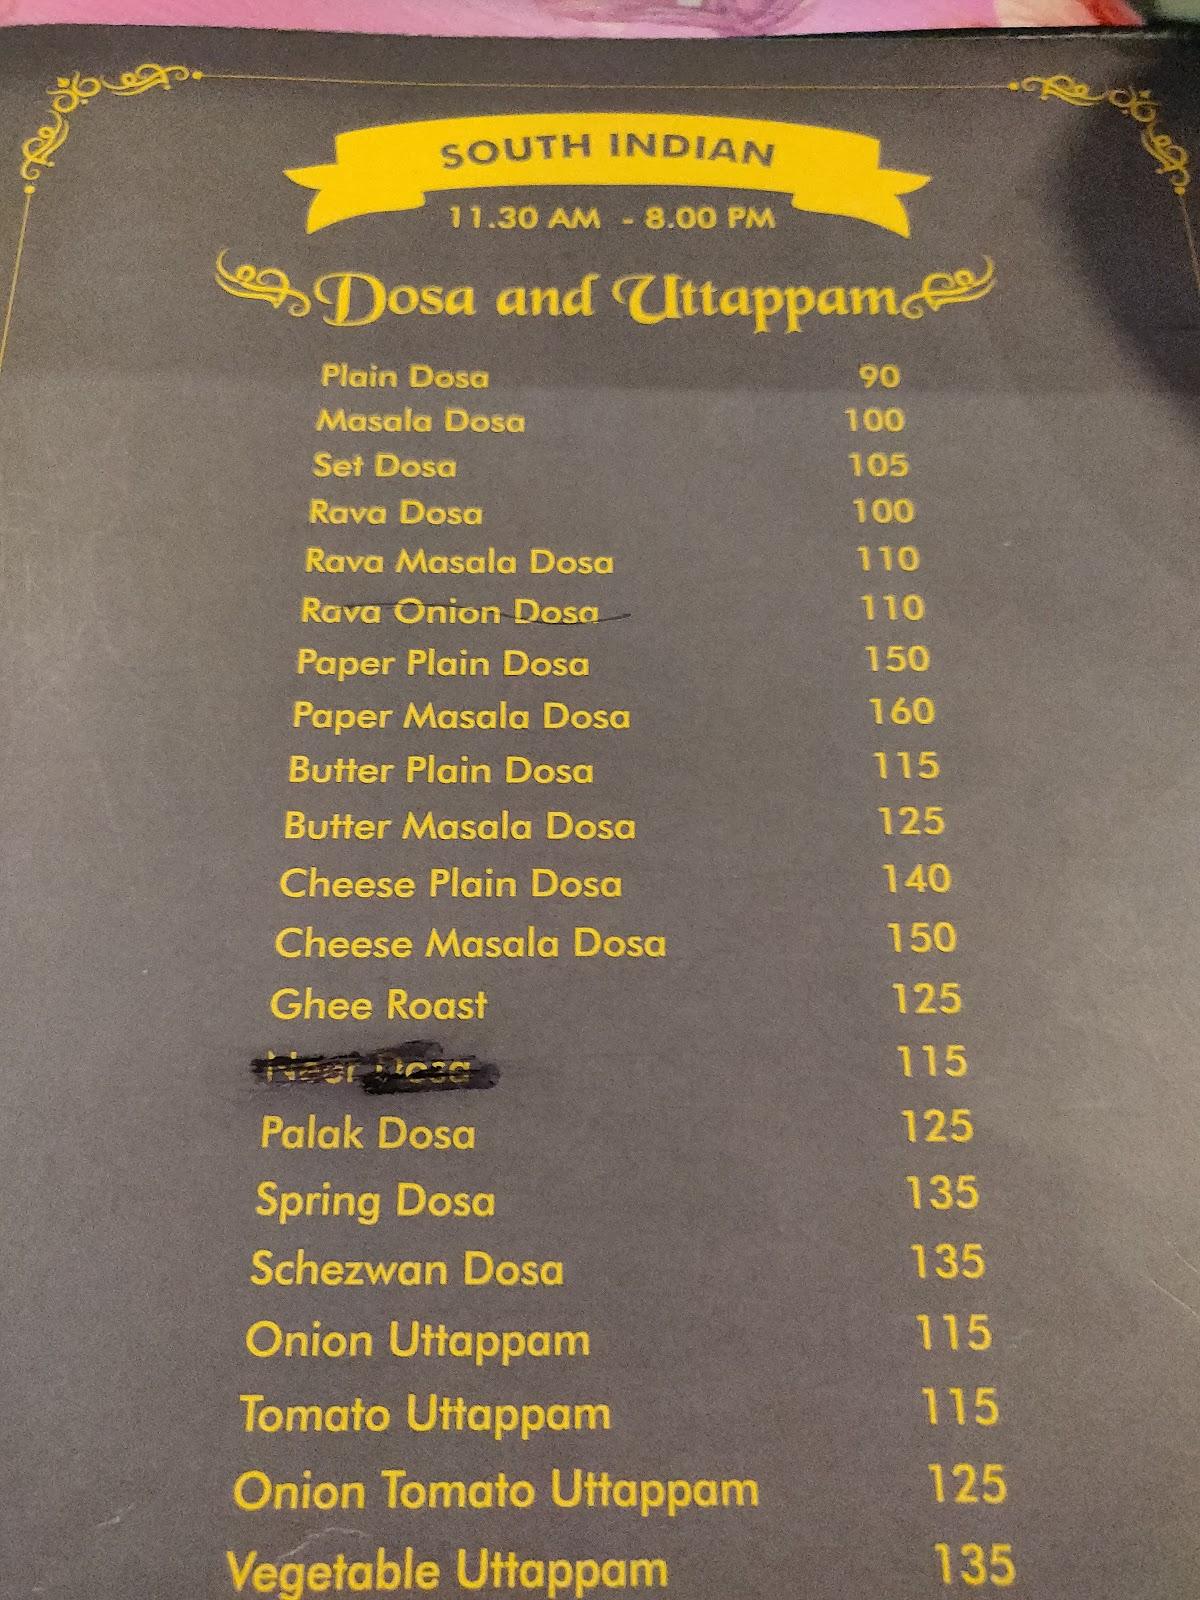 SOUTH INDIAN
11.30 AM - 8.00 PM
Dosa and Uttappam
Plain Dosa 90
Masala Dosa 100
Set Dosa 105
Rava Dosa 100
Rava Masala Dosa 110
Rava Onion Dosa 110
Paper Plain Dosa 150
Paper Masala Dosa 160
Butter Plain Dosa 115
Butter Masala Dosa 125
Cheese Plain Dosa 140
Cheese Masala Dosa 150
Ghee Roast 125
Neer Dosa 115
Palak Dosa 125
Spring Dosa 135
Schezwan Dosa 135
Onion Uttappam 115
Tomato Uttappam 115
Onion Tomato Uttappam 125
Vegetable Uttappam 135